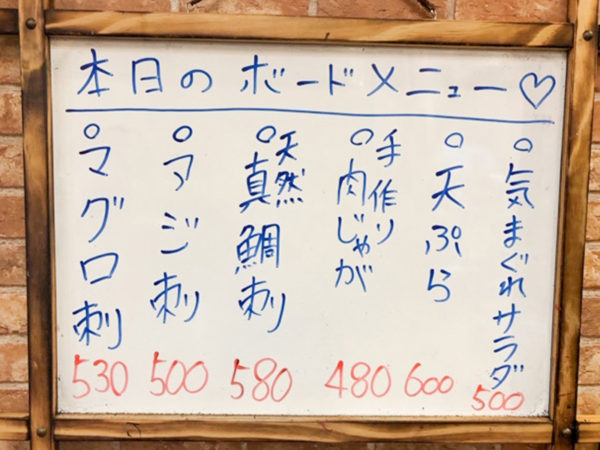 本日のボードメニュー♡
○気まぐれサラダ
500
○天ぷら
600
手作り
○肉じゃが
480
天然
○真鯛刺
580
○アジ刺
500
○マグロ刺
530